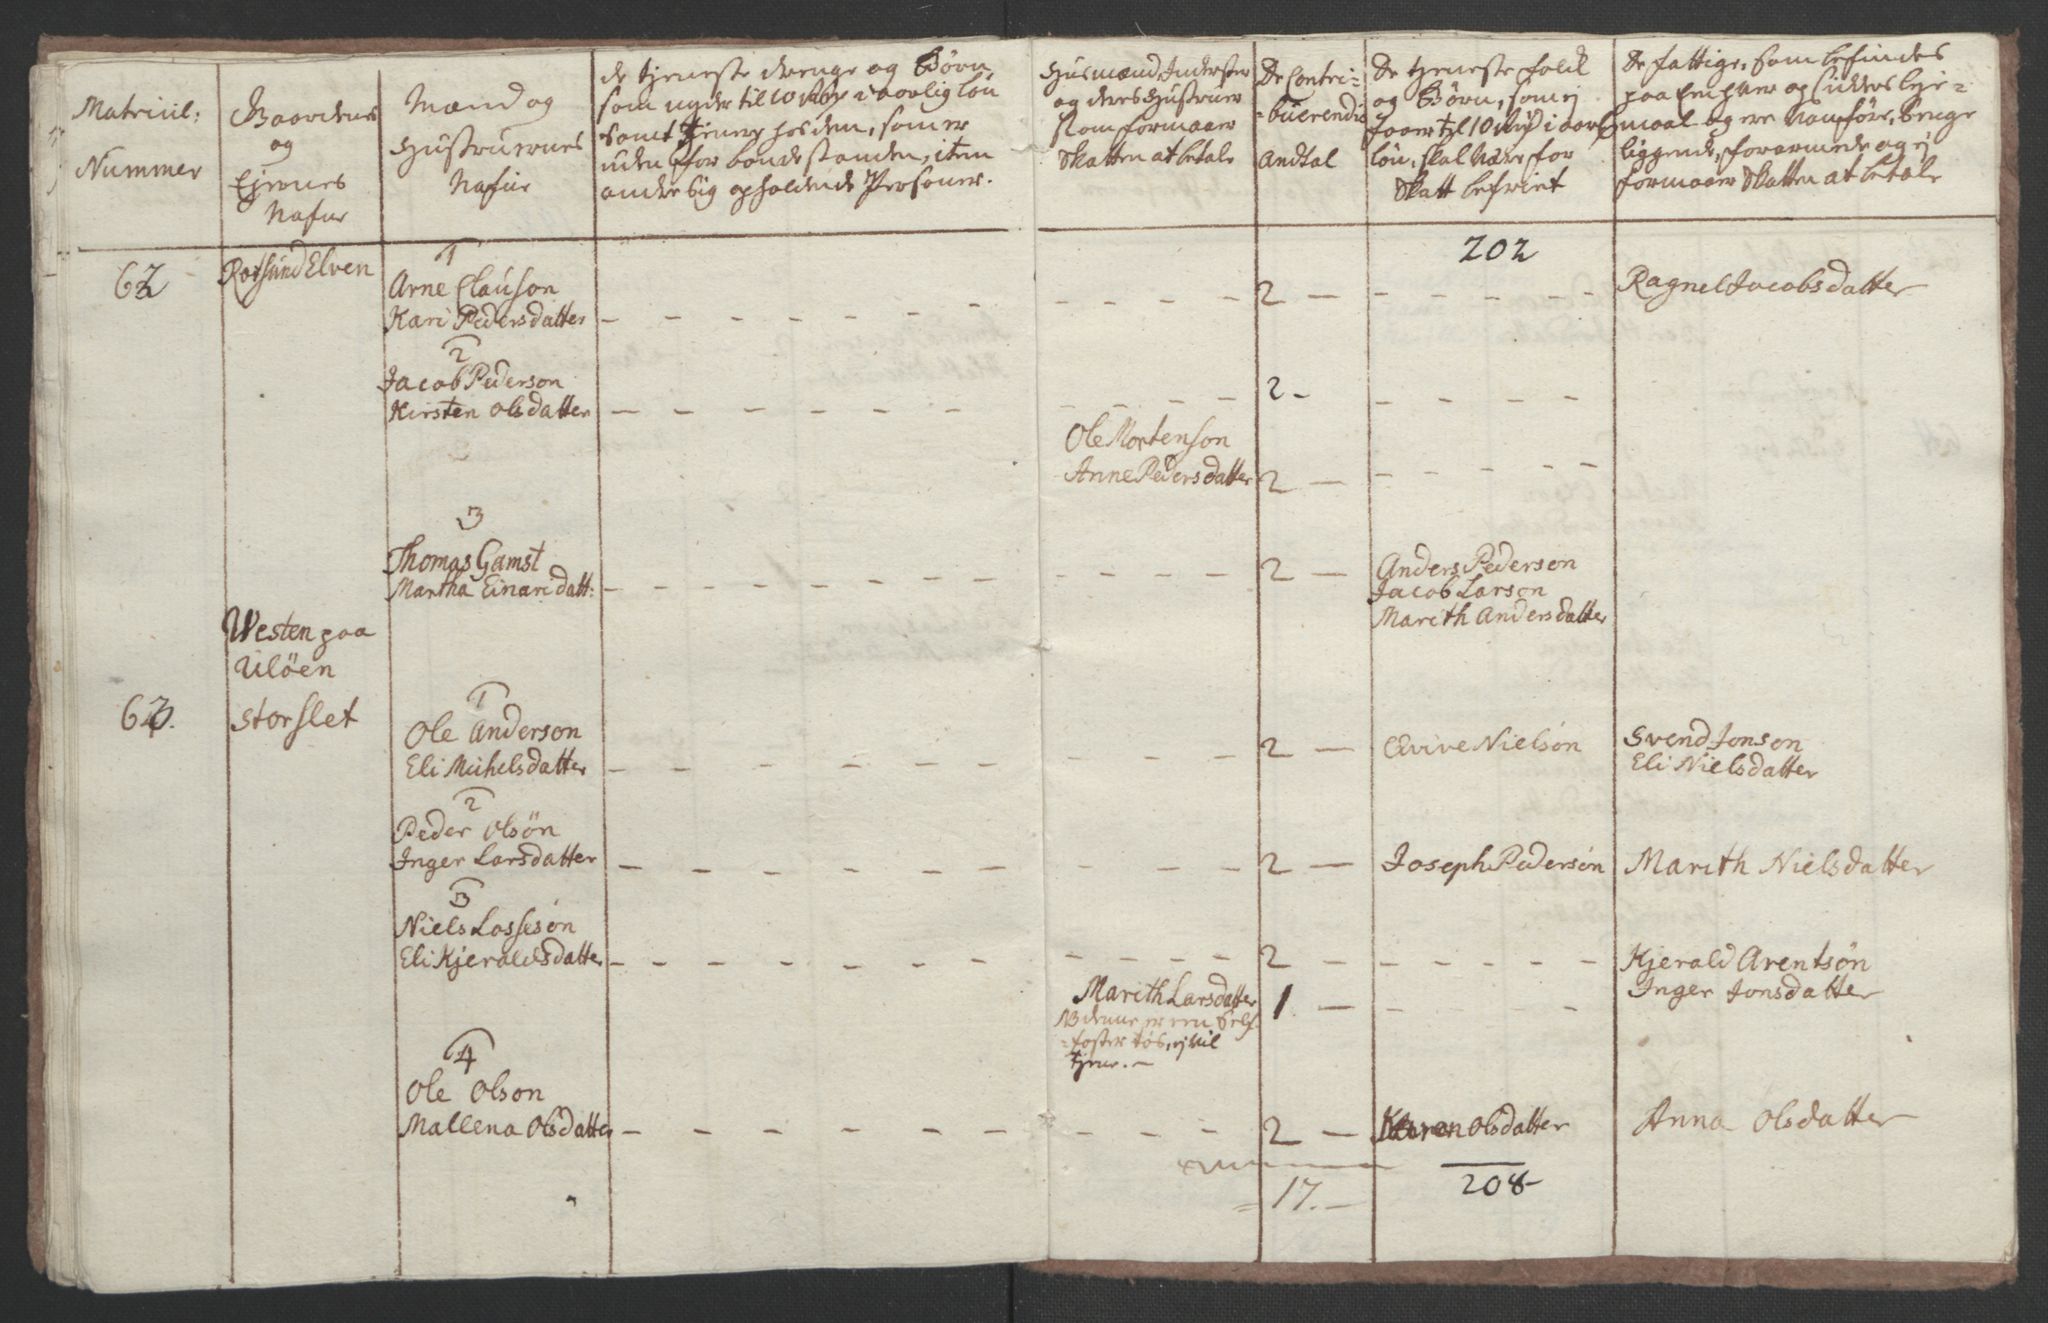 Matricul:
Nummer
Gaardenes
og
Ejernes
Nafne
Mænd og
Hustruernes
Nafne
de tjeneste drenge og Börn
som nyder til 10 rdr i aarlig lön
samt tjener hos dem, som er
uden for bondestanden, item
andre sig opholdende Personer.
Husmænd Inderster
og deres Hustruer
som formaaer
Skatten at betale
De Contri-
-buerendis
Andtal
De tjeneste folk
og Börn, som ej
faaer til 10 rdr i aarl
lön, skal være for
Skatt befriet
De fattige, som befindes
paa Enhver og sidders leje-
maal og ere vanföre, senge
liggende, forarmede og ej
formaaer Skatten at betale
202
62
Rotsund Elven
1
Arne Clauson
Kari Pedersdatter
2
Ragnel Jacobsdatter
2
Jacob Pederson
Kirsten Olsdatter
2
Ole Mortenson
Anne Pedersdatter
2
3
Thomas Gamst
Martha Einaridatt:
2
Anders Pederson
Jacob Larson
Marith Andersdatter
Westen paa
Ulöen
63.
Storslet
1
Ole Anderson
Eli Michelsdatter
2
Qvive Nielsön
Svend Jonson
Eli Nielsdatter
2
Peder Olsön
Inger Larsdatter
2
Joseph Pedersön
Marith Nielsdatter
3
Niels Lassesön
Eli Kjeraldsdatter
2
Kjerald Arentsön
Inger Jonsdatter
Marith Larsdatter
1
NB denne er een
foster tös, ej vil
tjene.
4
Ole Olson
Mallena Olsdatter
2
Karen Olsdatter
Anna Olsdatter
= 17.
208